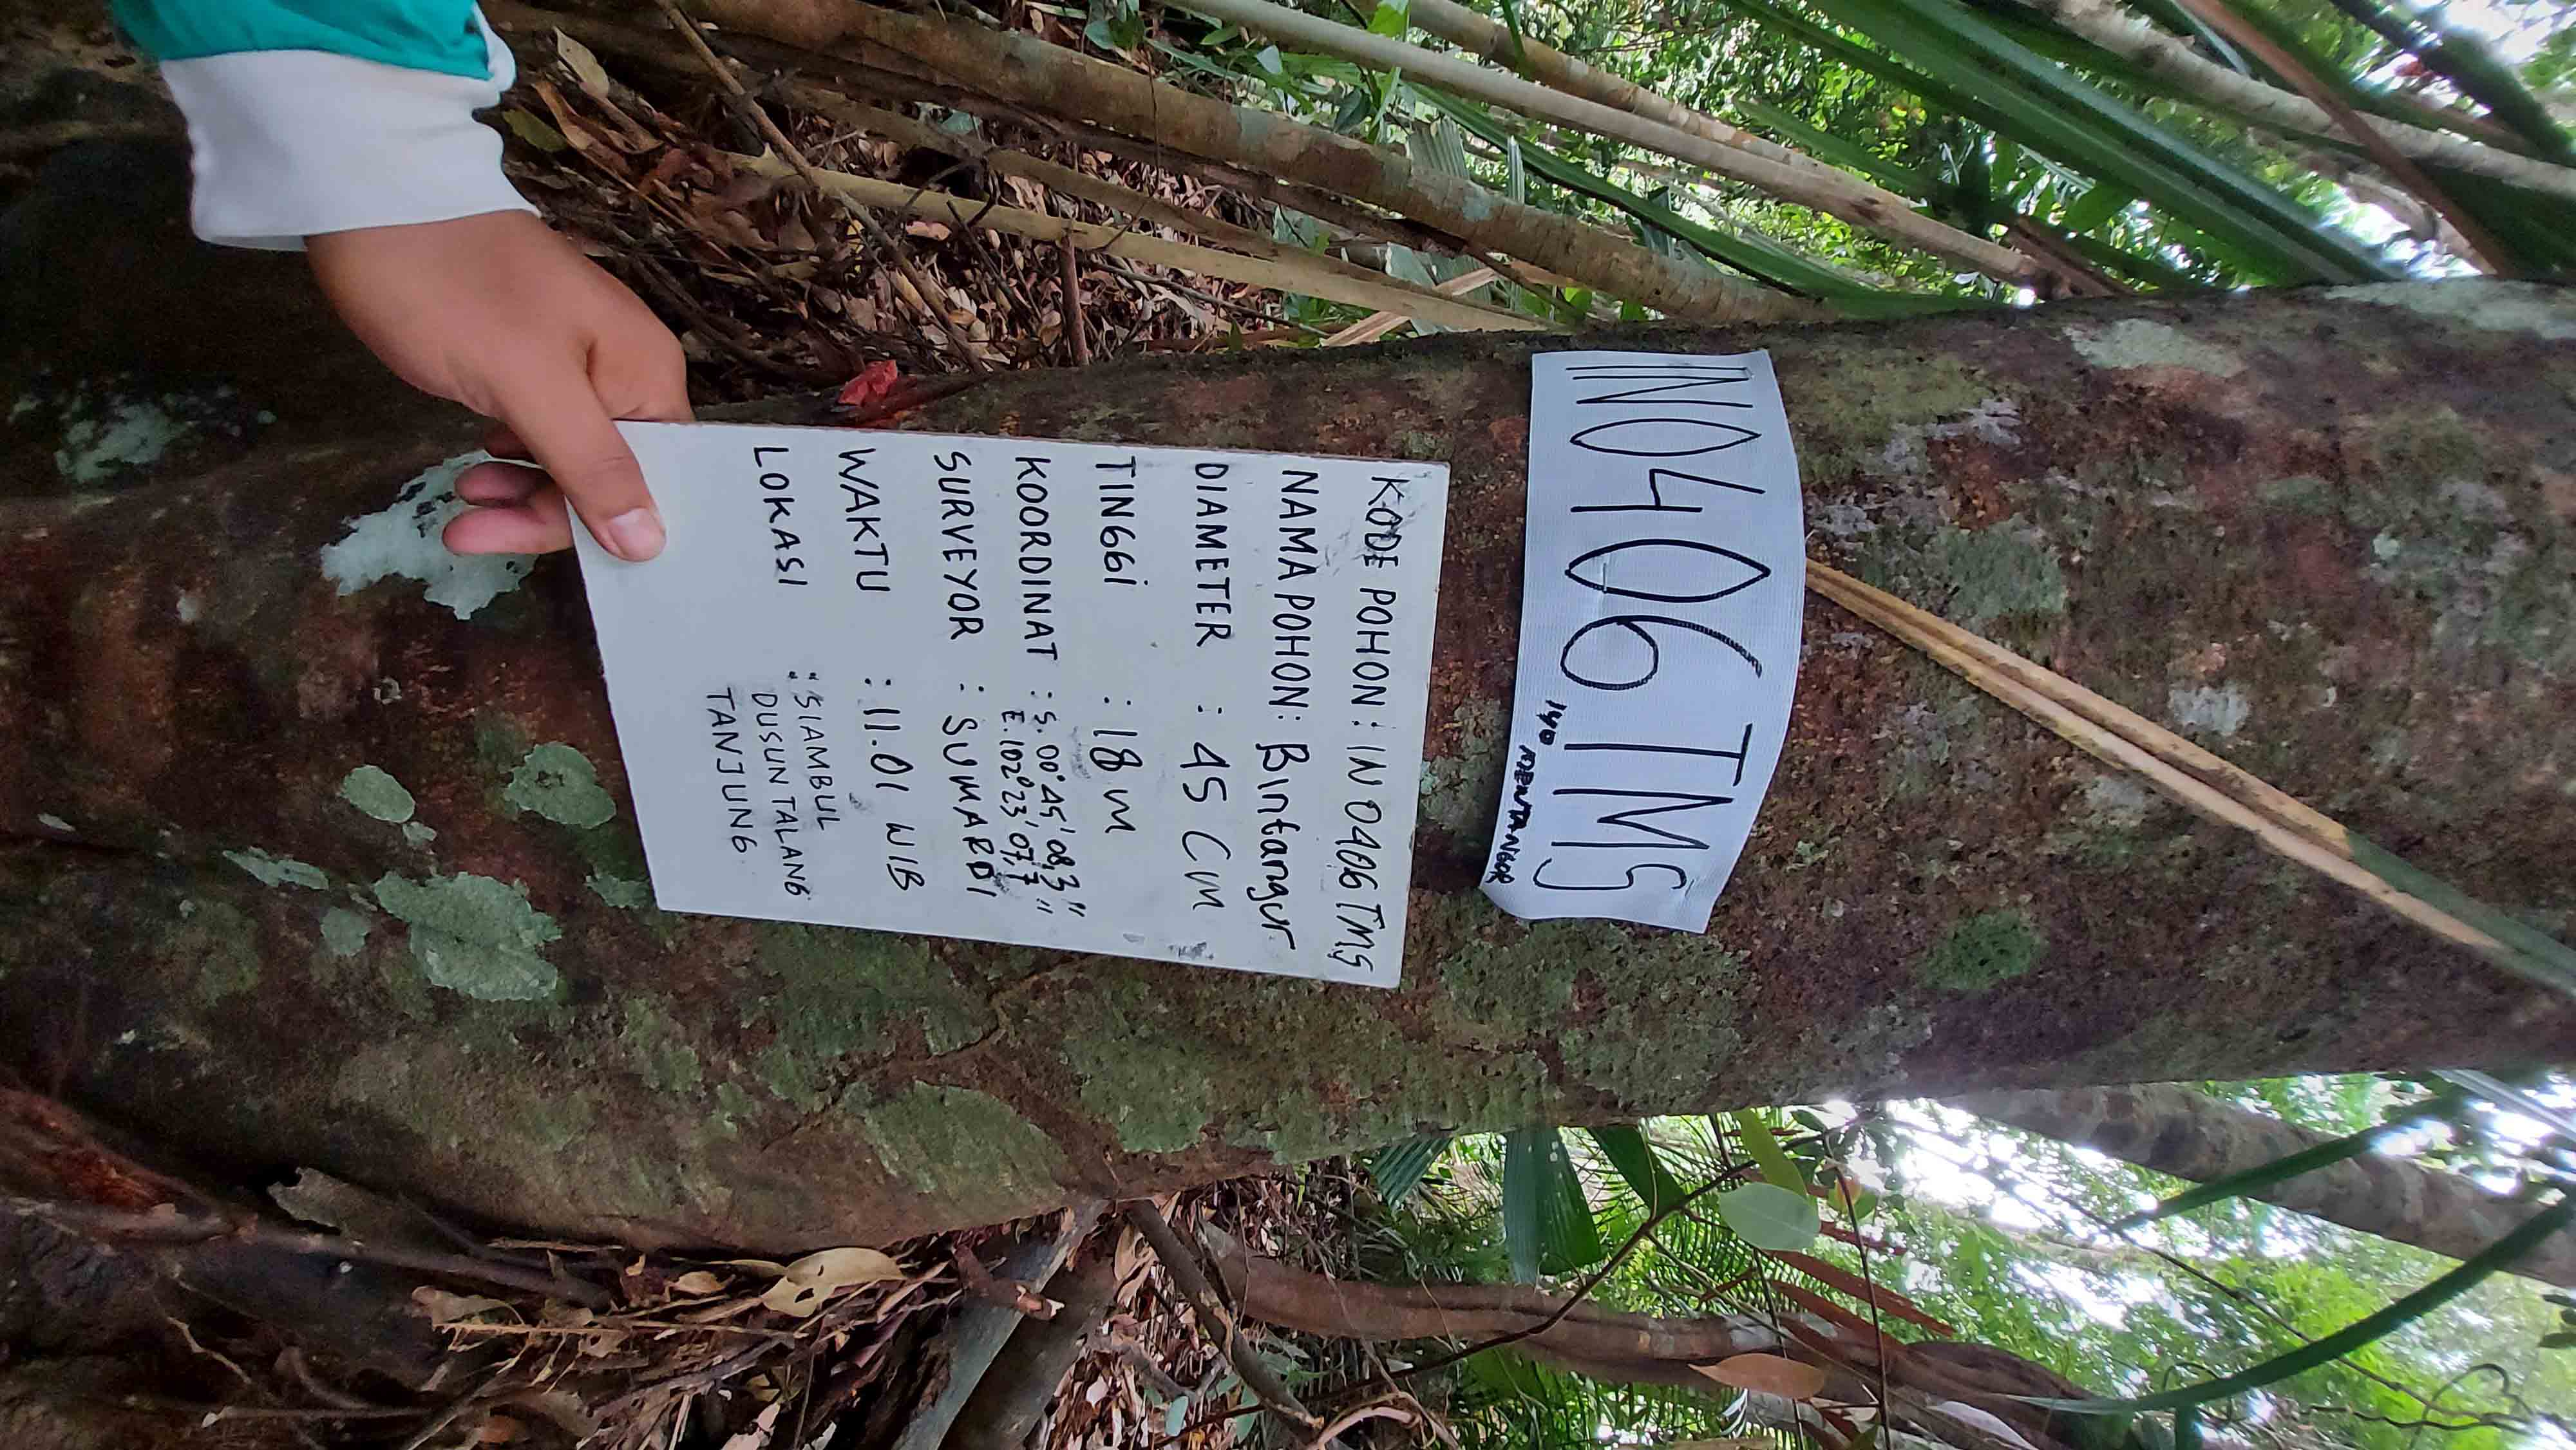 IN0406 TMS
140
MENTANGOR
KODE POHON : IN 0406 TMS
NAMA POHON : Bintangur
DIAMETER : 45 CM
TINGGI : 18 m
KOORDINAT : S. 00° 45' 08,3"
E. 102° 23' 07,7"
SURVEYOR : SUMARDI
WAKTU : 11.01 WIB
LOKASI : SIAMBUL
DUSUN TALANG
TANJUNG